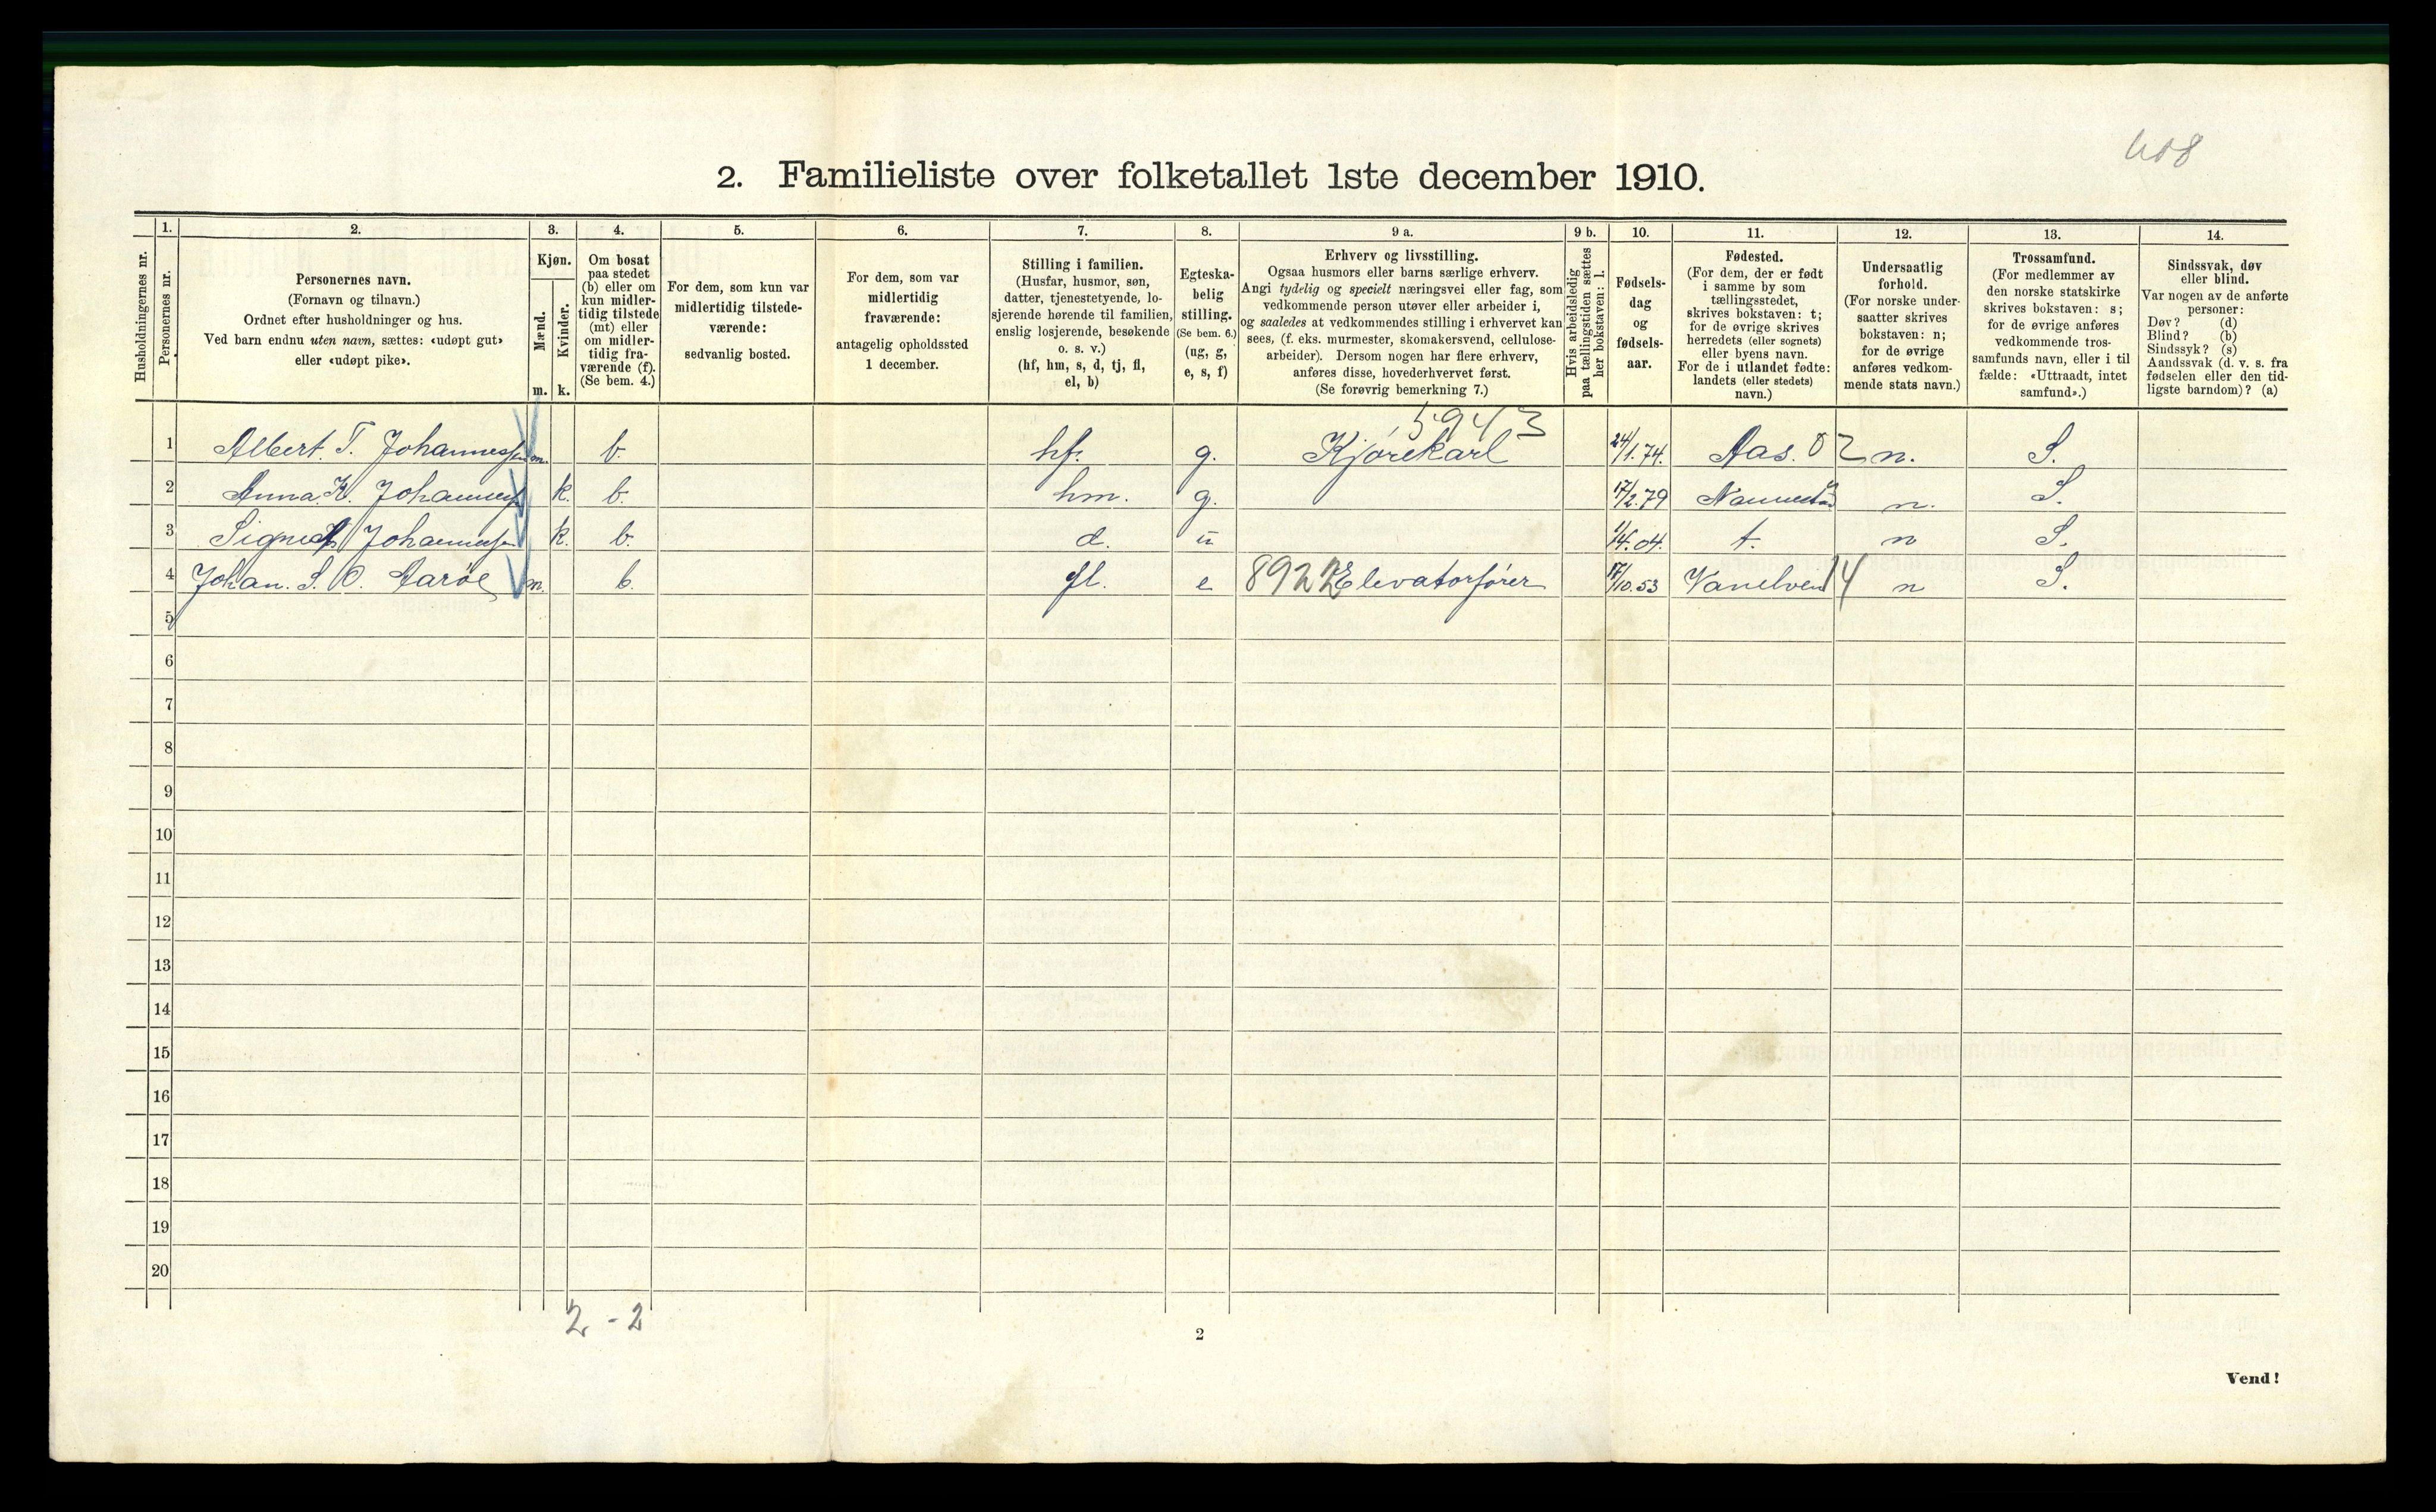 608
2. Familieliste over folketallet 1ste december 1910.
Husholdningernes nr.
1.
Personernes nr.
2.
Personernes navn.
(Fornavn og tilnavn.)
Ordnet efter husholdninger og hus.
Ved barn endnu uten navn, sættes: «udøpt gut»
eller «udøpt pike».
3.
Kjøn.
Mænd.
Kvinder.
m. k.
4.
Om bosat
paa stedet
(b) eller om
kun midler-
tidig tilstede
(mt) eller
om midler-
tidig fra-
værende (f).
(Se bem. 4.)
5.
For dem, som kun var
midlertidig tilstede-
værende:
sedvanlig bosted.
6.
For dem, som var
midlertidig
fraværende:
antagelig opholdssted
1 december.
7.
Stilling i familien.
(Husfar, husmor, søn,
datter, tjenestetyende, lo-
sjerende hørende til familien,
enslig losjerende, besøkende
o. s. v.)
(hf, hm, s, d, tj, fl,
el, b)
8.
Egteska-
belig
stilling.
(Se bem. 6.)
(ug, g,
e, s, f)
9 a.
Erhverv og livsstilling.
Ogsaa husmors eller barns særlige erhverv.
Angi tydelig og specielt næringsvei eller fag, som
vedkommende person utøver eller arbeider i,
og saaledes at vedkommendes stilling i erhvervet kan
sees, (f. eks. murmester, skomakersvend, cellulose-
arbeider). Dersom nogen har flere erhverv,
anføres disse, hovederhvervet først.
(Se forøvrig bemerkning 7.)
9 b.
Hvis arbeidsledig
paa tællingstiden sættes
her bokstaven: l.
10.
Fødsels-
dag
og
fødsels-
aar.
11.
Fødested.
(For dem, der er født
i samme by som
tællingsstedet,
skrives bokstaven: t;
for de øvrige skrives
herredets (eller sognets)
eller byens navn.
For de i utlandet fødte:
landets (eller stedets)
navn.)
12.
Undersaatlig
forhold.
(For norske under-
saatter skrives
bokstaven: n;
for de øvrige
anføres vedkom-
mende stats navn.)
13.
Trossamfund.
(For medlemmer av
den norske statskirke
skrives bokstaven: s;
for de øvrige anføres
vedkommende tros-
samfunds navn, eller i til
fælde: «Uttraadt, intet
samfund».)
14.
Sindssvak, døv
eller blind.
Var nogen av de anførte
personer:
Døv? (d)
Blind? (b)
Sindssyk? (s)
Aandssvak (d. v. s. fra
fødselen eller den tid-
ligste barndom)? (a)
5943
1 Albert. T. Johannessen m. b. hf. g. Kjørekarl 24/1.74. Aas. 02 n. S.
2 Anna K. Johannessen k. b. hm. g. 17/2.79 n. S.
3 Signe Johannessen k. b. d. u 04. t. n S.
4 Johan. S. O. Aarøe m. b. fl. e 8922 Elevatorfører 17/10.53 Vanelven 14 n S.
5
6
7
8
9
10
11
12
13
14
15
16
17
18
19
20
2 - 2
2
Vend!